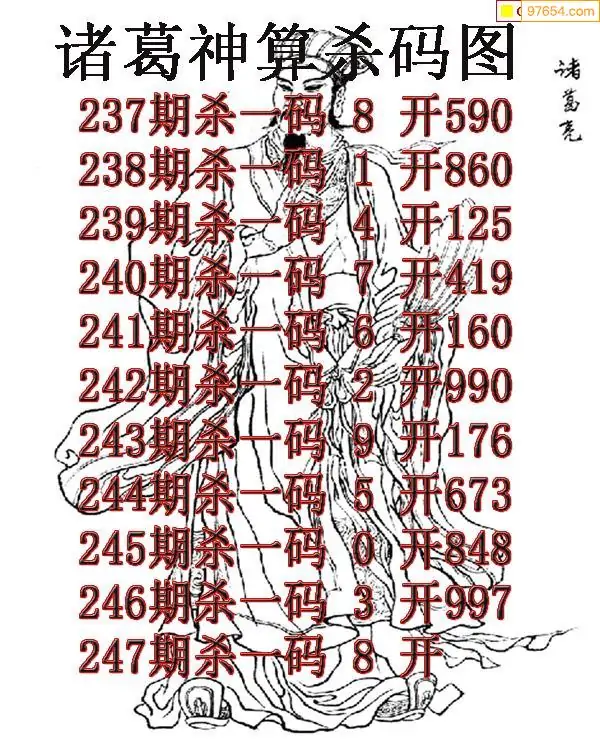 97654.com
诸葛神算杀码图
诸葛亮
237期杀一码 8 开590
238期杀一码 1 开860
239期杀一码 4 开125
240期杀一码 7 开419
241期杀一码 6 开160
242期杀一码 2 开990
243期杀一码 9 开176
244期杀一码 5 开673
245期杀一码 0 开848
246期杀一码 3 开997
247期杀一码 8 开